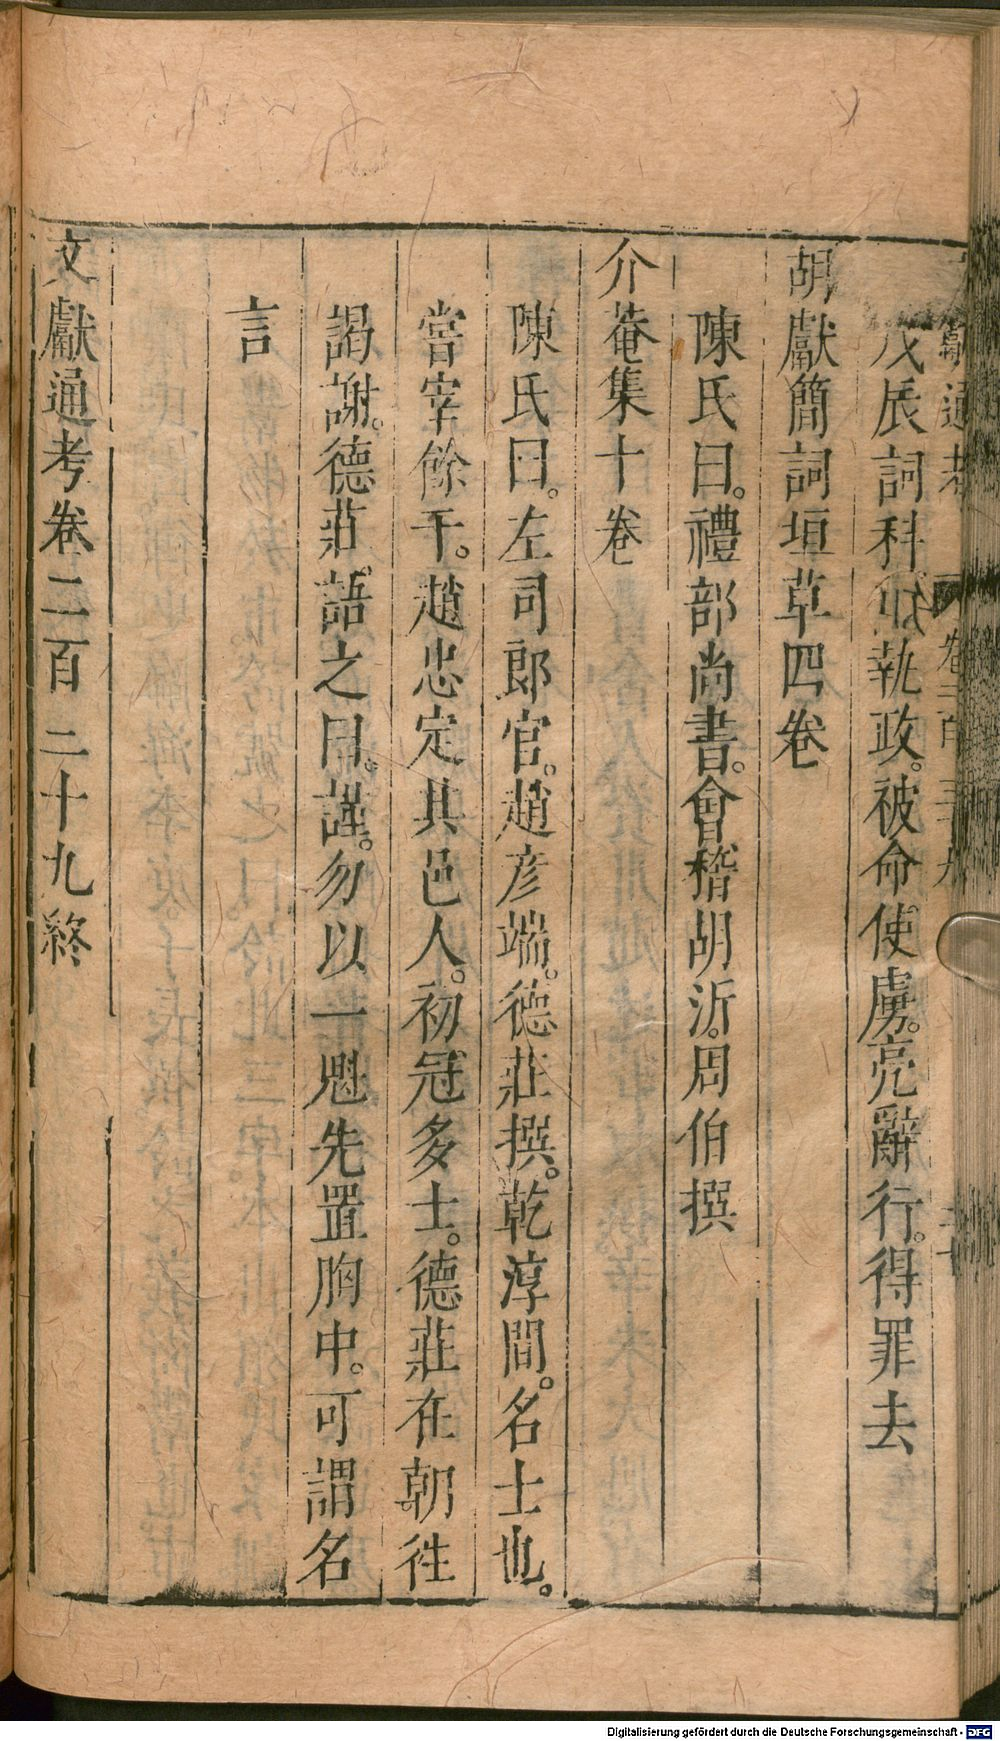 獻通考 卷二百三十九 三十
戊辰詞科似執政。被命使虜。亮辭行。得罪去
胡獻簡詞垣草四卷
陳氏曰。禮部尚書。會稽胡沂。周伯撰
介菴集十卷
陳氏曰。左司郎官。趙彥端。德莊撰。乾淳間。名士也。
嘗宰餘干。趙忠定其邑人。初冠多士。德莊在朝徃
謁謝。德莊。語之曰。謹。勿以一魁先置胸中。可謂名
言
文獻通考卷二百二十九終
Digitalisierung gefördert durch die Deutsche Forschungsgemeinschaft - DFG